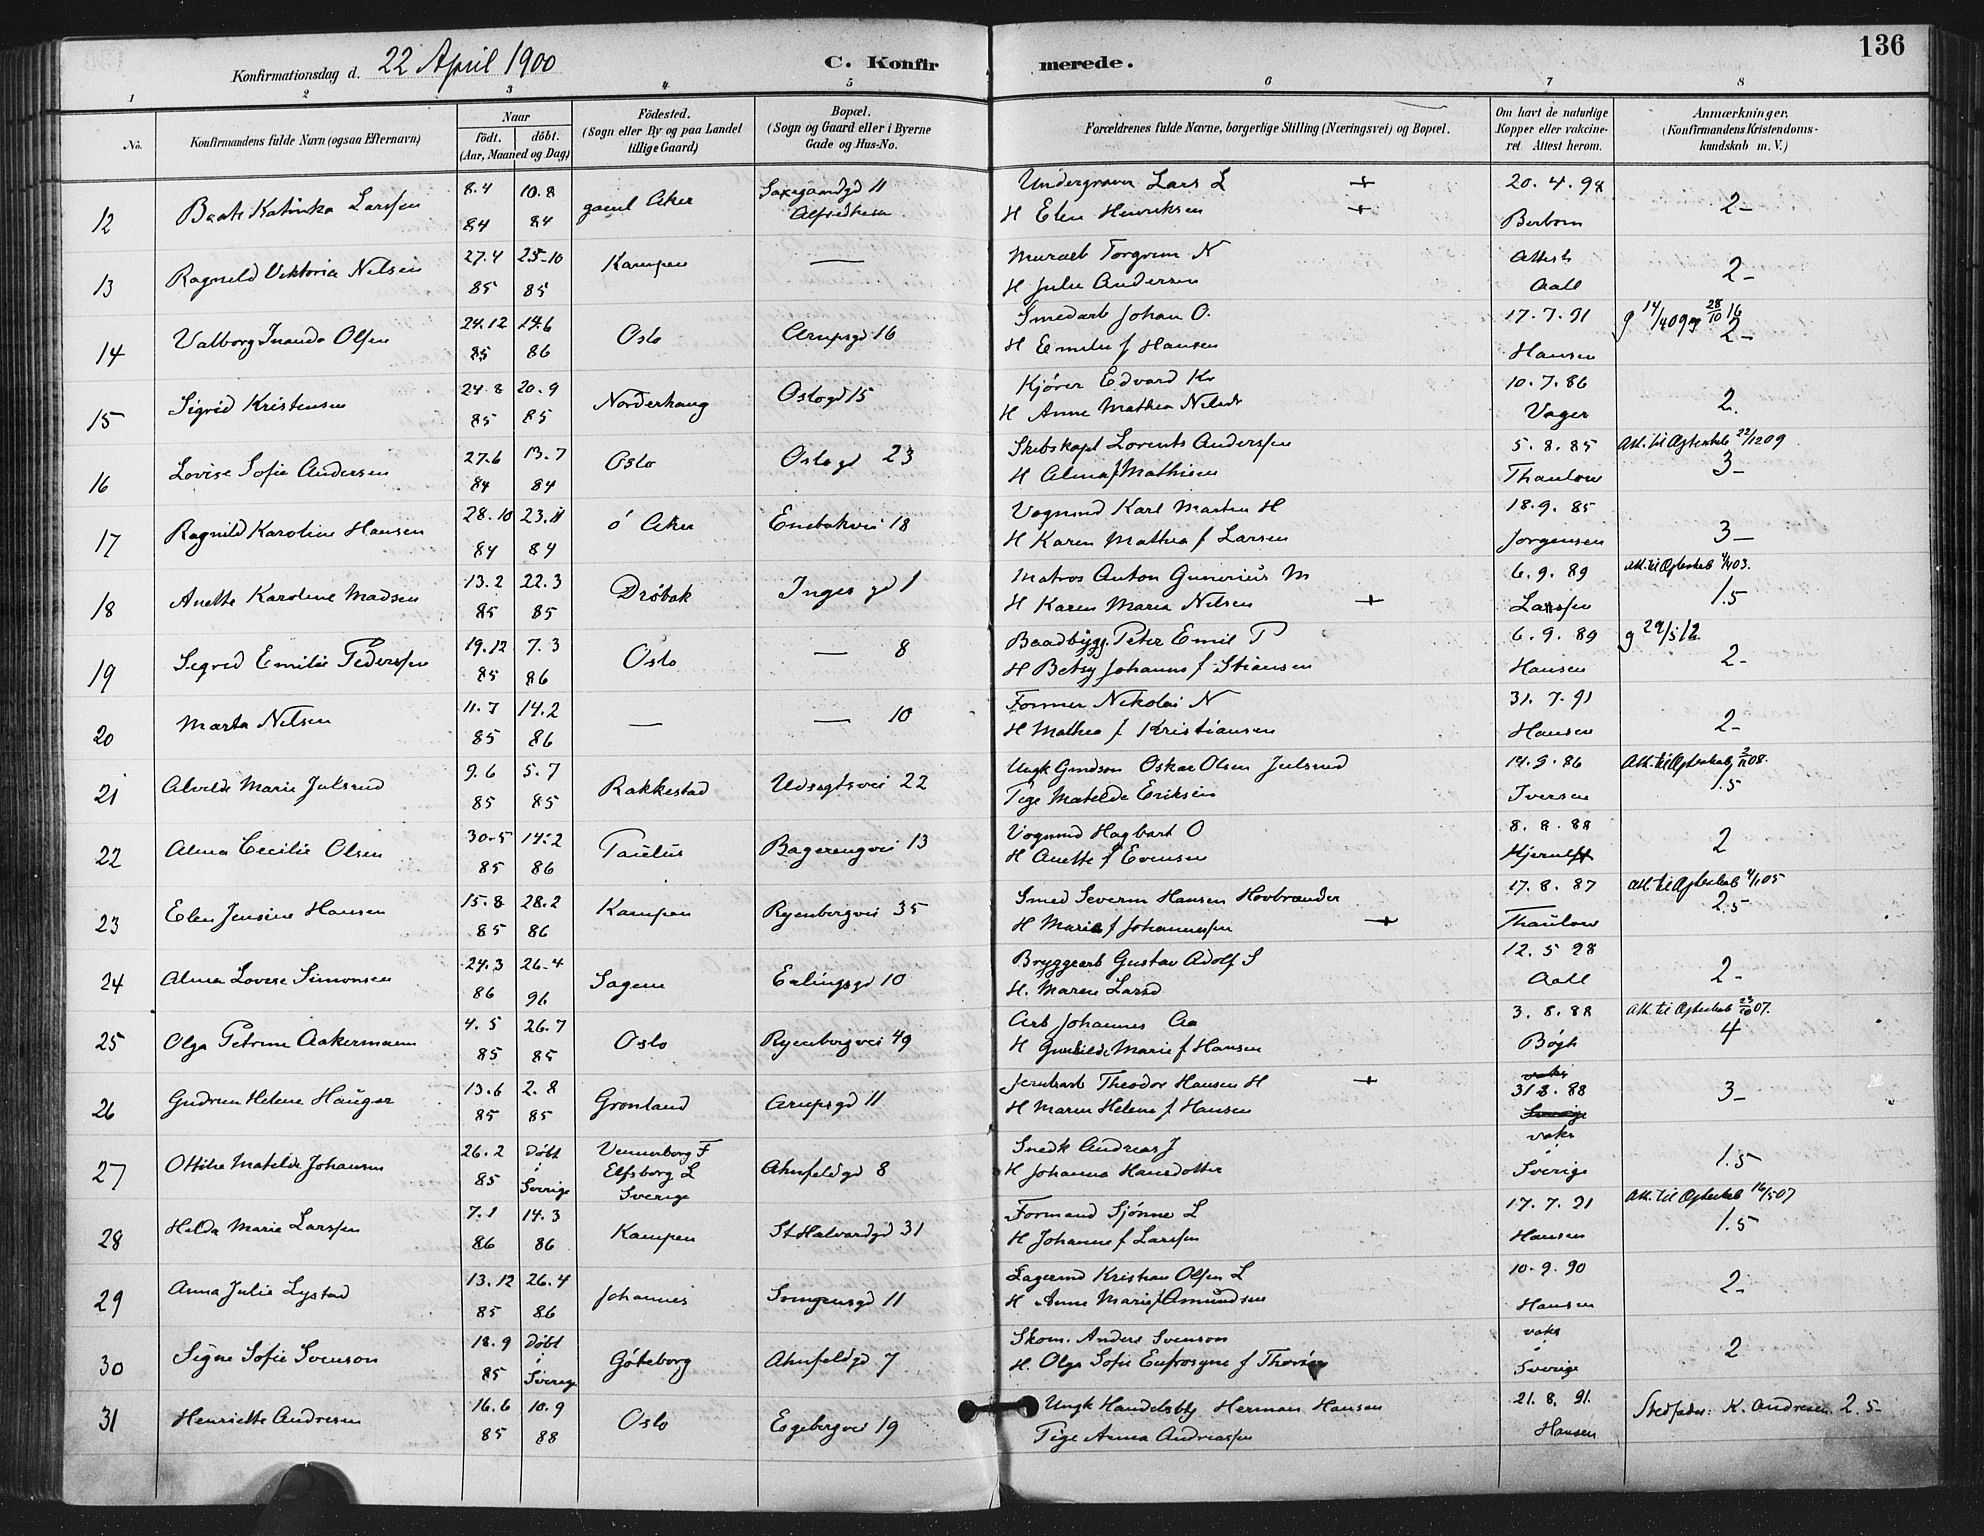 136
Konfirmationsdag d. 22 April 1900
C. Konfirmerede.
1 2 3 4 5 6 7 8
No.
Konfirmandens fulde Navn (ogsaa Efternavn)
Naar
födt. döbt.
(Aar, Maaned og Dag)
Födested.
(Sogn eller By og paa Landet
tillige Gaard)
Bopæl.
(Sogn og Gaard eller i Byerne
Gade og Hus-No.
Forældrenes fulde Navne, borgerlige Stilling (Næringsvei) og Bopæl.
Om havt de naturlige
Kopper eller vakcine-
ret. Attest herom.
Anmærkninger.
(Konfirmandens Kristendoms-
kundskab m. V.)
8.4 10.8 Saxegaardgd 11 Undergraver Lars L + 20.4.98
12 Katinka Larssen gaml Aker 2-
84 84 H Elen Henriksen +
27.4 25-10 Torgrim N Attest
13 Ragnild Viktoria Nilsen Kampen — 2-
85 85 H Julie Andersen Aall
24.12 14.6 Smedarb Johan O. 17.7.91 g 14/4 09 28/10 16
14 Valborg Olsen Oslo Arupsgd 16 2-
85 86 H Emilie f Hansen Hansen
24.8 20.9 Kjører Edvard Kr 10.7.86
15 Sigrid Kristensen Norderhaug Oslogd 15 2.
85 85 H Anne Mathea Vager
27.6 13.7 Skibskapt Lorents Anderssen 5.8.85 Att. til Ægteskab 22/12 09
16 Lovise Sofie Andersen Oslo Oslogd 23 3-
84 84 H Alma f Mathisen Thaulow
28.10 23.11 Vognmd Karl Martin H 18.9.85
17 Ragnild Karoline Hansen ö Aker Enebakvei 18 3-
84 84 H Karen Mathea f Larsen Jorgensen
13.2 22.3 Matros Anton Gunerius M 6.9.89 Att. til Ægteskab 03.
18 Anette Karoline Madsen Drøbak Inges gd 1 1.5
85 85 H Karen Maria Nilsen + Larssen
19.12 7.3 Baadbygg. Peter Emil P 6.9.89 g 29/5 12
19 Sigrid Emilie Pederssen Oslo — 8 2-
85 86 H Betsy Johanne f Stiansen Hansen
11.7 14.2 Former Nikolai N 31.7.91
20 Marta Nilsen — — 10 2-
85 86 H Mathea f Kristiansen Hansen
9.6 5.7 Ungk Oskar Olsen Julsrud 14.9.86 Att. til Ægteskab 08.
21 Alvilde Marie Julsrud Rakkestad Udsigtsvei 22 1.5
85 85 Pige Matilde Eriksen Iversen
30.5 14.2 Vognmd Hagbart O 8.8.88
22 Alma Cecilie Olsen Paulus Bagerengvei 13 2
85 86 H Anette f Evensen Hjerulff
15.8 28.2 Smed Severin Hansen Hovbrænder 17.8.87 Att. til Ægteskab 05
23 Elen Jensine Hansen Kampen Ryenbergvei 35 2.5
85 86 H Marie f Johannessen + Thaulow
24.3 26.4 Bryggearb Gustav Adolf S 12.5 98
24 Alma Lovise Simonsen Sagene Erlingsgd 10 2-
86 96 H. Maren Larsd Aall
4.5 26.7 Arb Johannes Aa 3.8.88 Att. til Ægteskab 23/10 07.
25 Olga Petrine Aakermann Oslo Ryenbergvei 49 4
85 85 H Gunhilde Marie f Hansen Bøgh
13.6 2.8 Theodor Hansen H + 31 8.88
26 Gudrun Helene Hauger Grønland Arupsgd 11 3-
85 85 H Maren Helene f Hansen
26.2 Döbt Venersborg F Snedk Andreas J vaks
27 Ottilie Matilde Johansen i Elfsborg L Ahnfeldgd 8 1.5
85 Sverige Sverige H Johanna Hansdotter Sverige
7.1 14.3 Formand Sjønne L 17.7.91 Att. til Ægteskab 16/5 07
28 Hilda Marie Larssen Kampen St Halvardgd 31 1.5
86 86 H Johanne f Larssen Hansen
13.12 26.4 Lagermd Kristian Olsen L 10-9.90
29 Anna Julie Lystad Johannes Sörengsgd 11 2-
85 86 H Anne Marie f Amundsen Hansen
18.9 Döbt Skom. Anders Svenson vaks
30 Signe Sofie Svenson i Göteborg Ahnfeldgd 7 2
85 Sverige H. Olga Sofie Eufrosyne f Sverige
16.6 10.9 Ungk Handelsbtj Herman Hansen 21.8.91.
31 Henriette Andresen Oslo Egebergvei 19 Stedfader: K. Andresen 2.5-
85 88 Pige Anna Andreassen Hansen